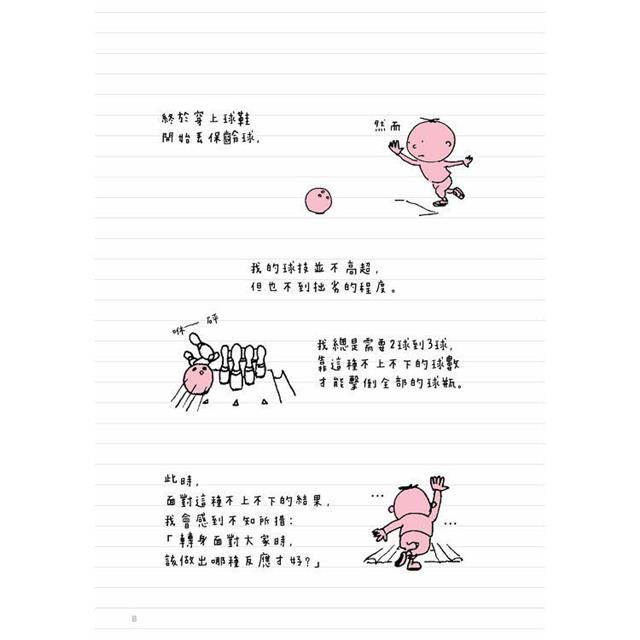 終於穿上球鞋
開始丟保齡球，
然而
我的球技並不高超，
但也不到拙劣的程度。
咻—砰
我總是需要2球到3球，
靠這種不上不下的球數
才能擊倒全部的球瓶。
此時，
面對這種不上不下的結果，
我會感到不知所措：
「轉身面對大家時，
該做出哪種反應才好？」
...
...
8